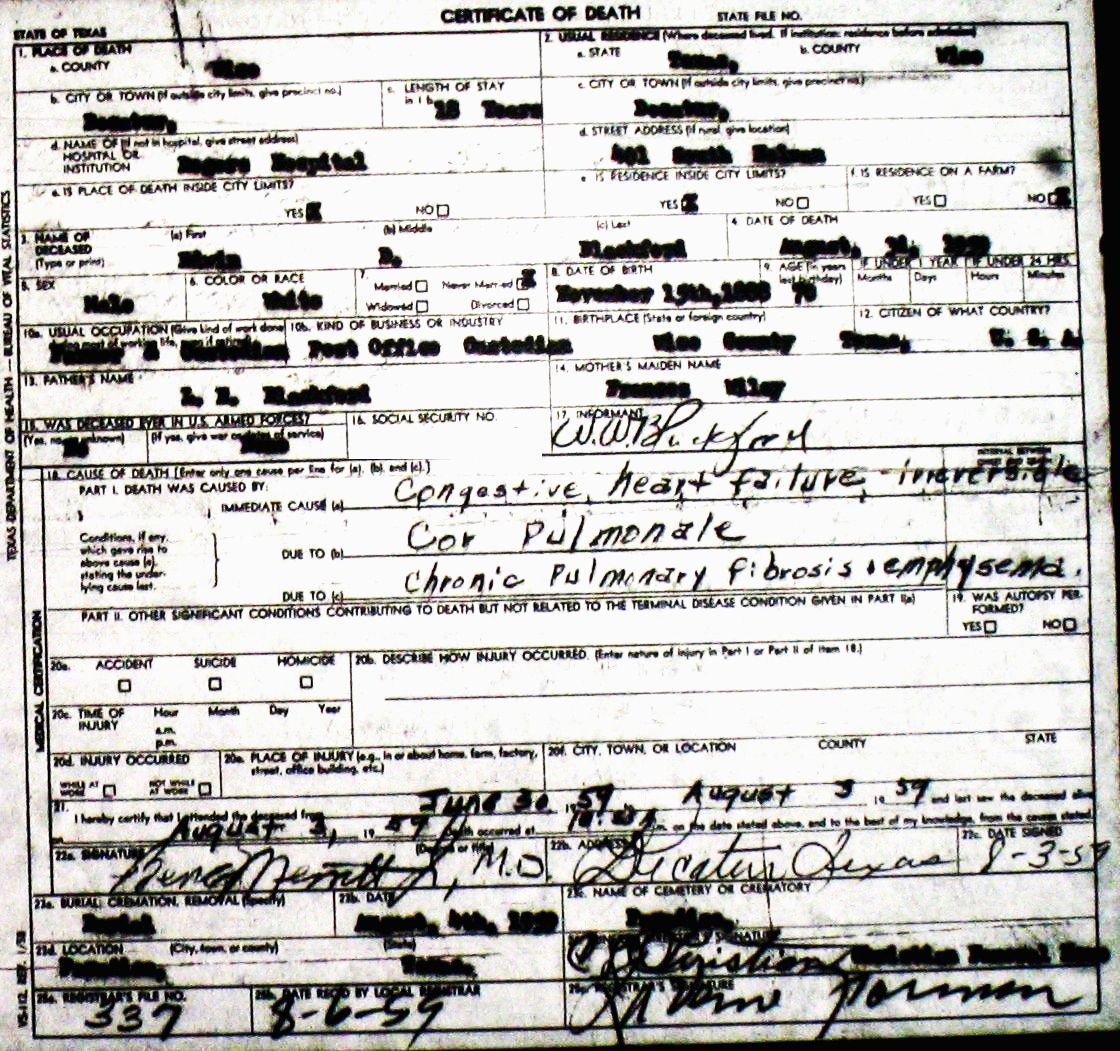 CERTIFICATE OF DEATH STATE FILE NO.
STATE OF TEXAS
1. PLACE OF DEATH
a. COUNTY
Wise
2. USUAL RESIDENCE (Where deceased lived. If institution: residence before admission)
a. STATE Texas, b. COUNTY Wise
b. CITY OR TOWN (If outside city limits, give precinct no.)
Decatur,
c. LENGTH OF STAY in 1 b
18 Years
c. CITY OR TOWN (If outside city limits, give precinct no.)
Decatur,
d. NAME OF (If not in hospital, give street address)
HOSPITAL OR
INSTITUTION
Rogers Hospital
d. STREET ADDRESS (If rural, give location)
401 South
e. IS PLACE OF DEATH INSIDE CITY LIMITS?
YES X NO
e. IS RESIDENCE INSIDE CITY LIMITS?
YES X NO
f. IS RESIDENCE ON A FARM?
YES NO X
3. NAME OF DECEASED (Type or print)
(a) First (b) Middle (c) Last
Edwin Blackford
4. DATE OF DEATH
August,
5. SEX
Male
6. COLOR OR RACE
White
7. Married Never Married X
Widowed Divorced
8. DATE OF BIRTH
November
9. AGE (In years last birthday)
IF UNDER 1 YEAR IF UNDER 24 HRS.
Months Days Hours Minutes
10a. USUAL OCCUPATION (Give kind of work done during most of working life, even if retired)
Custodian
10b. KIND OF BUSINESS OR INDUSTRY
Post Office Custodian
11. BIRTHPLACE (State or foreign country)
Wise County Texas,
12. CITIZEN OF WHAT COUNTRY?
U. S. A.
13. FATHER'S NAME
Blackford
14. MOTHER'S MAIDEN NAME
Frances Wiley
15. WAS DECEASED EVER IN U.S. ARMED FORCES?
(Yes, no, or unknown) (If yes, give war or dates of service)
No
16. SOCIAL SECURITY NO.
17. INFORMANT
W.W. Blackford
18. CAUSE OF DEATH [Enter only one cause per line for (a), (b), and (c).]
INTERVAL BETWEEN
PART I. DEATH WAS CAUSED BY:
IMMEDIATE CAUSE (a) Congestive heart failure, irreversible
Conditions, if any, which gave rise to above cause (a), stating the underlying cause last.
DUE TO (b) Cor Pulmonale
DUE TO (c) Chronic Pulmonary fibrosis & emphysema.
PART II. OTHER SIGNIFICANT CONDITIONS CONTRIBUTING TO DEATH BUT NOT RELATED TO THE TERMINAL DISEASE CONDITION GIVEN IN PART I(a)
19. WAS AUTOPSY PERFORMED?
YES NO
20a. ACCIDENT SUICIDE HOMICIDE
20b. DESCRIBE HOW INJURY OCCURRED. (Enter nature of injury in Part I or Part II of item 18.)
20c. TIME OF INJURY Hour Month Day Year
a.m.
p.m.
20d. INJURY OCCURRED
WHILE AT WORK NOT WHILE AT WORK
20e. PLACE OF INJURY (e.g., in or about home, farm, factory, street, office building, etc.)
20f. CITY, TOWN, OR LOCATION COUNTY STATE
21.
I hereby certify that I attended the deceased from June 30 1959, August 3 1959 and last saw the deceased alive
August 3, 1959 Death occurred at m. on the date stated above, and to the best of my knowledge, from the causes stated.
22a. SIGNATURE (Degree or title)
Merritt M.D.
22b. ADDRESS
Decatur Texas
22c. DATE SIGNED
8-3-59
23a. BURIAL, CREMATION, REMOVAL (Specify)
Burial
23b. DATE
August, 4th, 1959
23c. NAME OF CEMETERY OR CREMATORY
Paradise,
23d. LOCATION (City, town, or county) (State)
Paradise, Texas,
SIGNATURE
Christian Christian Funeral Home
25a. REGISTRAR'S FILE NO.
337
25b. DATE REC'D BY LOCAL REGISTRAR
8-6-59
25c. REGISTRAR'S SIGNATURE
TEXAS DEPARTMENT OF HEALTH — BUREAU OF VITAL STATISTICS
MEDICAL CERTIFICATION